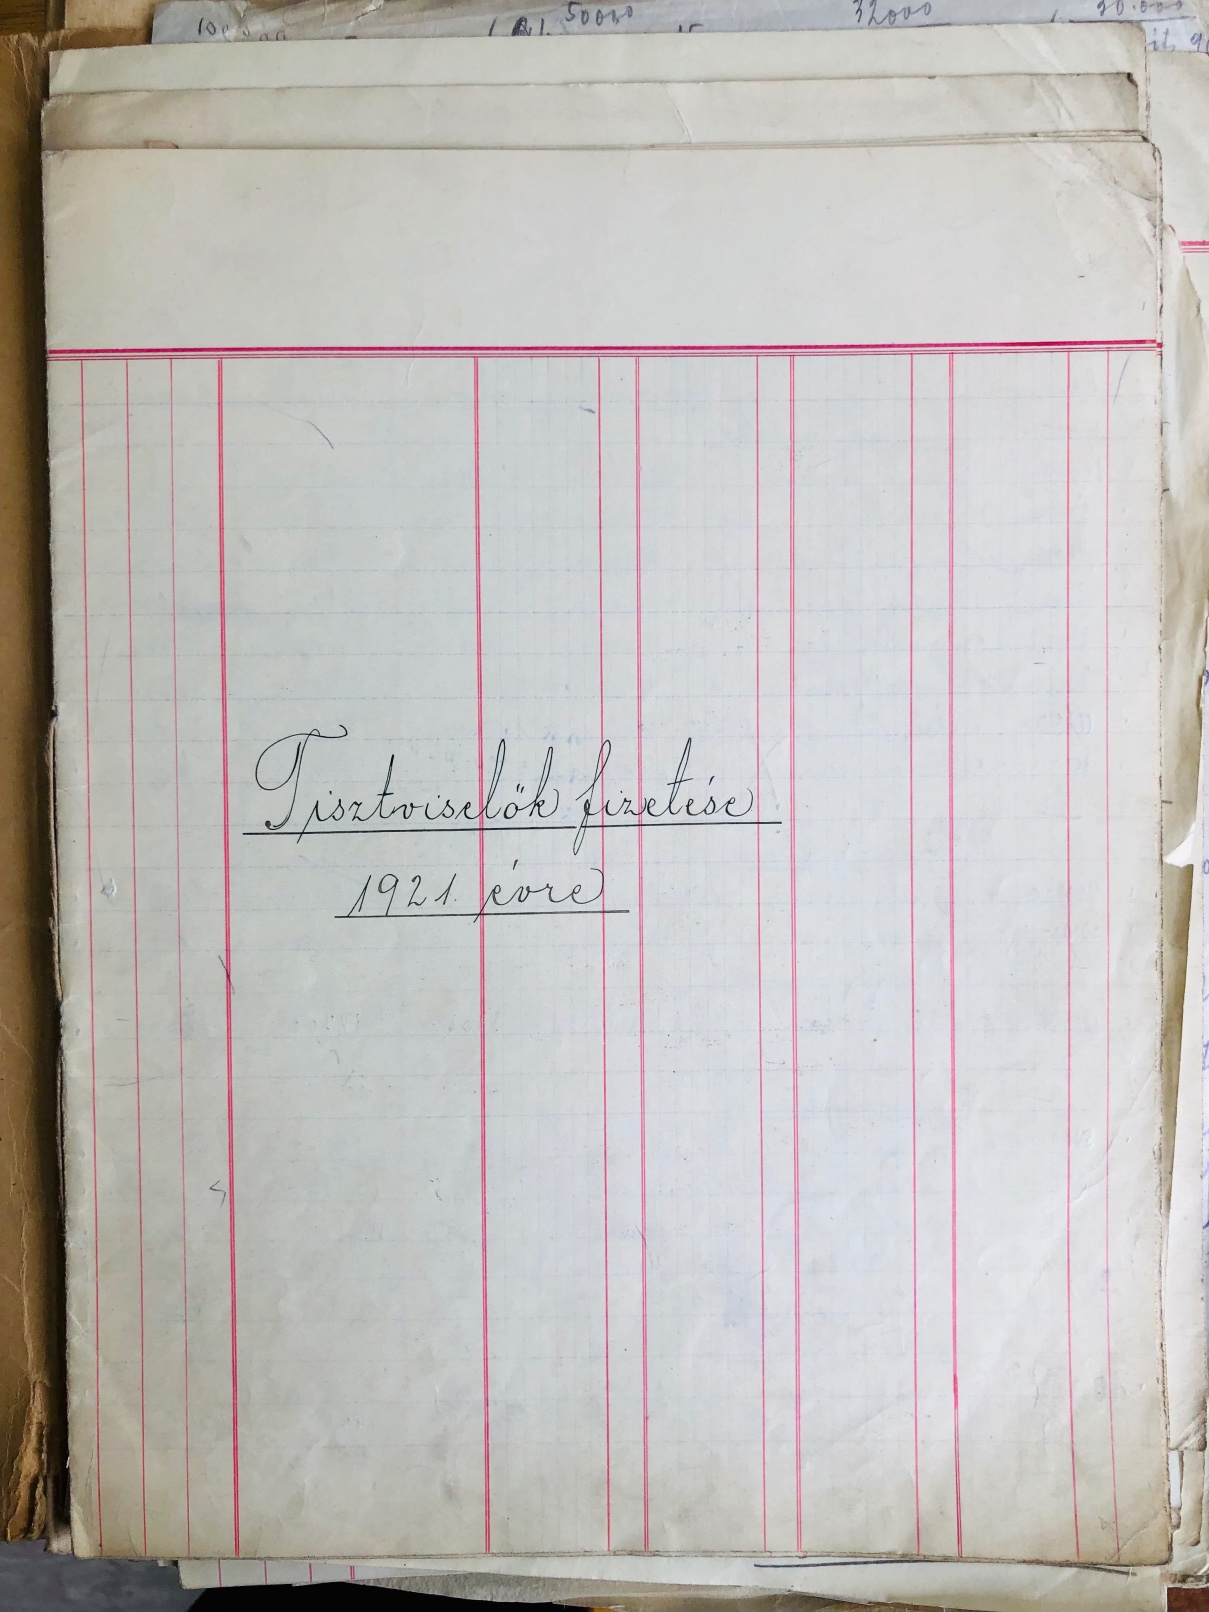 50000
32000
Tisztviselők fizetése
1921. évre